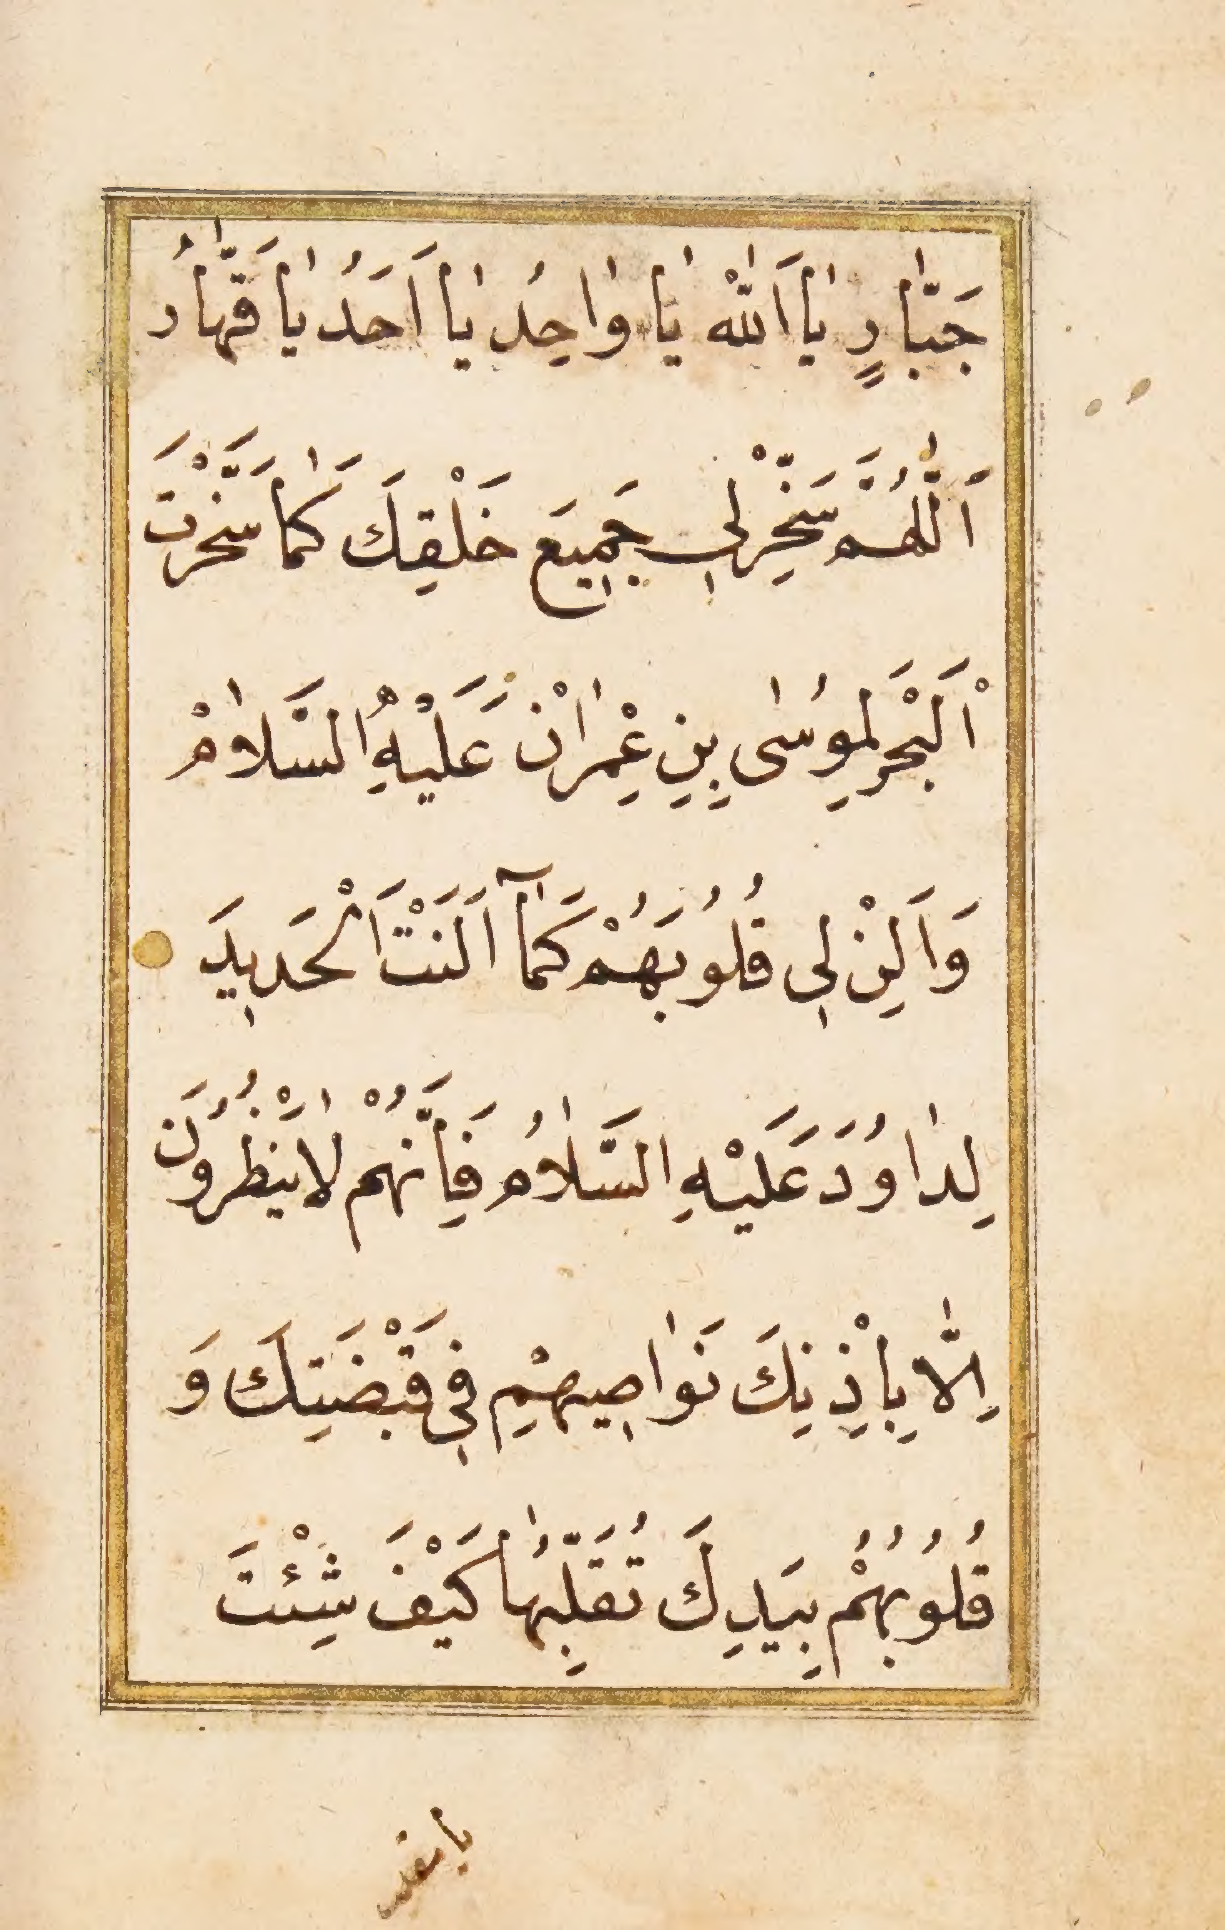 جَبّٰارٍ يٰا اَللّٰه يٰا وٰاحِدُ يٰا اَحَدُ يٰا قَهّٰارُ
اَللّٰهُمَّ سَخِّرْ لٖى جَمٖيعَ خَلْقِكَ كَمٰا سَخَّرْتَ
اْلبَحْرَ لِمُوسٰى بِنِ عِمْرٰانَ عَلَيْهِ السَّلٰامْ
وَاَلِنْ لٖى قُلُوبَهُمْ كَمٰٓا اَلَنْتَ اَلْحَدٖيدَ
لِدٰاوُدَ عَلَيْهِ السَّلٰامُ فَاِنَّهُمْ لٰا يَنْظُرُونَ
اِلّٰا بِاِذْنِكَ نَوٰاصٖيهِمْ فٖى قَبْضَتِكَ وَ
قُلُوبُهُمْ بِيَدِكَ تُقَلِّبُهٰا كَيْفَ شِئْتَ
يا مقلب